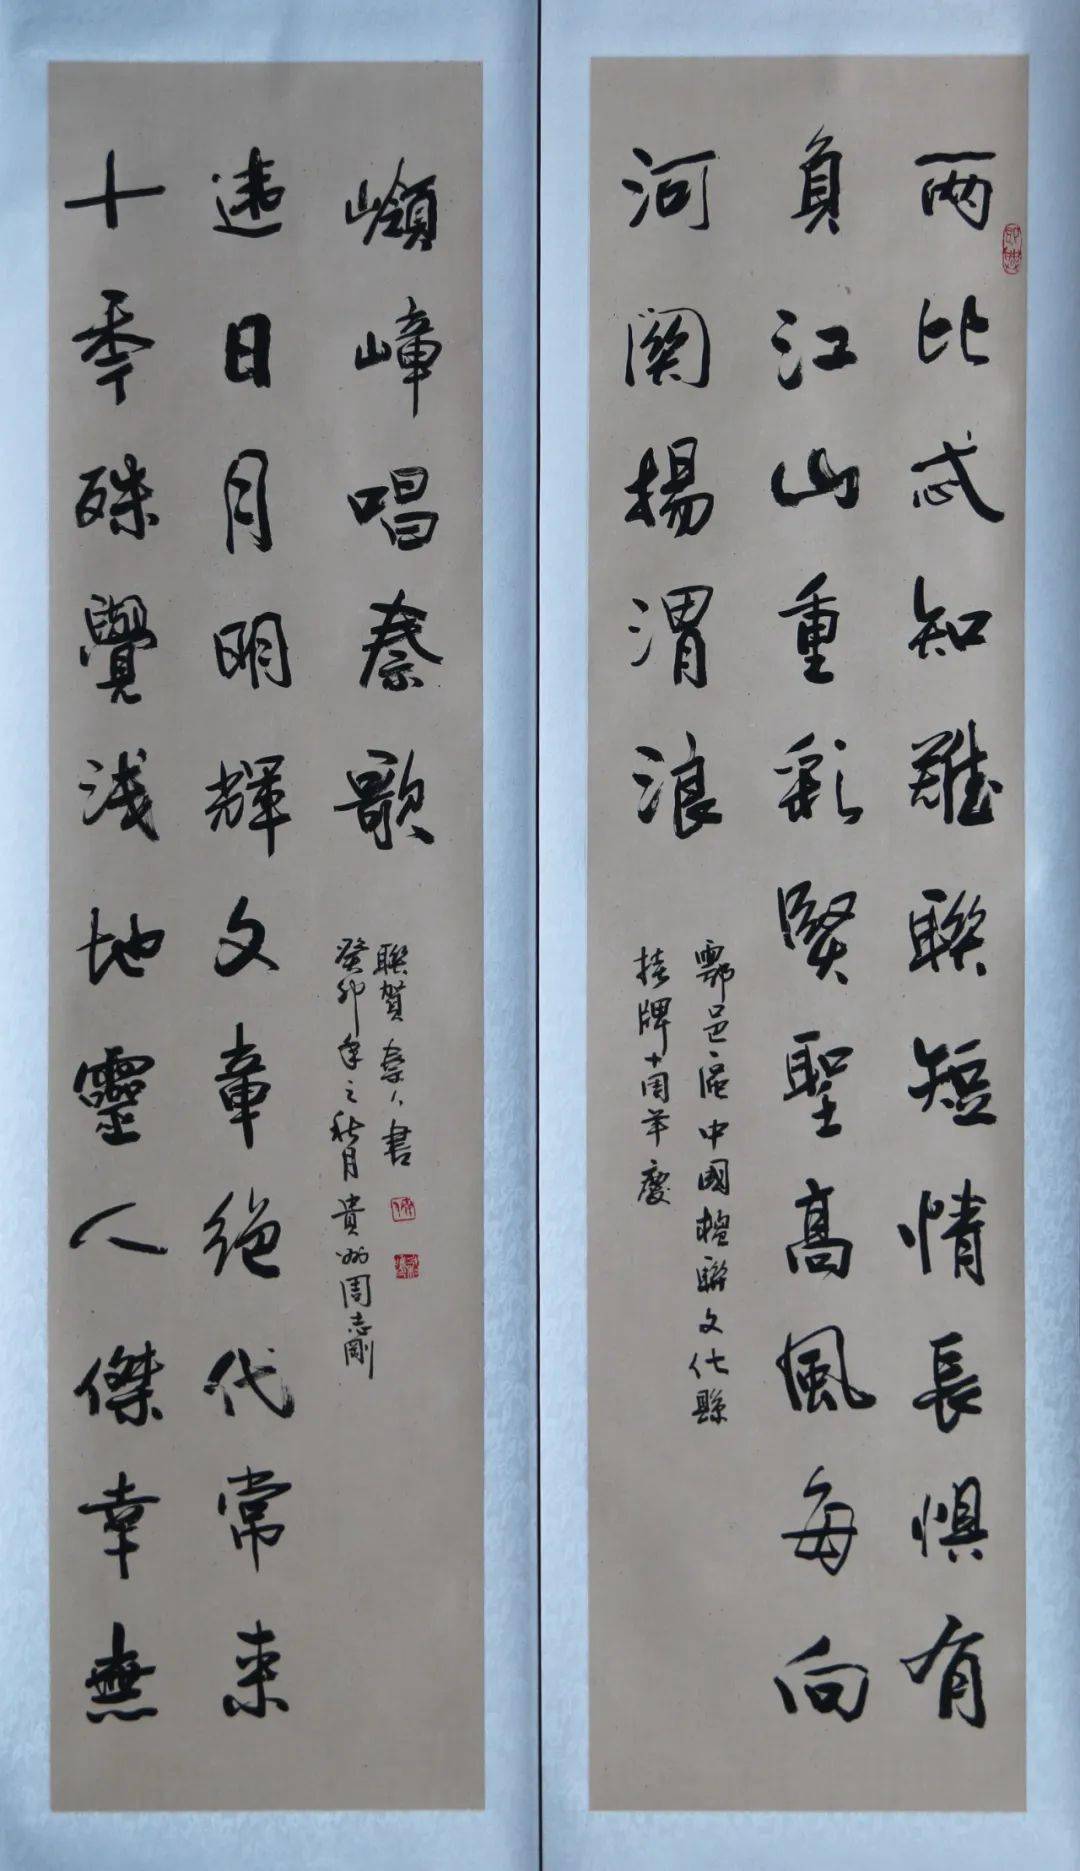 兩比忒知難聯短情長惧有
負江山重彩賢聖高風每向
河関揚渭浪
鄠邑區中國楹聯文化縣
掛牌十周年慶
十季殊覺淺地靈人傑幸無
違日月明輝文章绝代常来
嶺嶂唱秦歌
癸卯年之秋月貴州周志剛
聯賀 秦人書